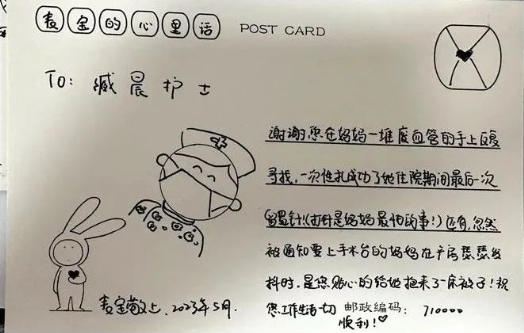 麦宝的心里话
POST CARD
To: 臧晨护士
谢谢您在妈妈一堆废血管的手上反复
寻找，一次性扎成功了她住院期间最后一次
留置针!(打针是妈妈最怕的事!)还有,忽然
被通知要上手术台的妈妈在产房瑟瑟发
抖时,是您贴心的给她抱来了一床被子!祝
您工作生活一切
顺利!
邮政编码: 710000
麦宝敬上. 2023年5月.